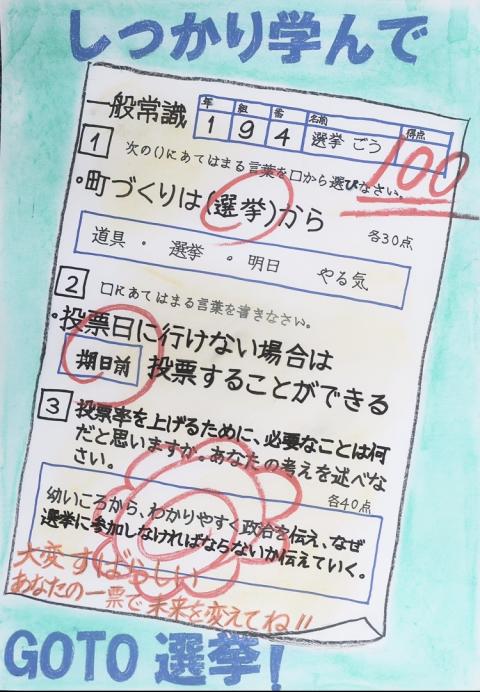 しっかり学んで
一般常識
年 組 番 名前 得点
1 9 4 選挙 ごう 100
1 次の()にあてはまる言葉を口から選びなさい。
・町づくりは(選挙)から
各30点
道具・選挙。明日 やる気
2 口にあてはまる言葉を書きなさい。
・投票日に行けない場合は
期日前 投票することができる
3 投票率を上げるために、必要なことは何
だと思いますか。あなたの考えを述べな
さい。
各40点
幼いころから、わかりやすく政治を伝え、なぜ
選挙に参加しなければならないか伝えていく。
大変すばらしい
あなたの一票で未来を変えてね!!
GOTO 選挙!